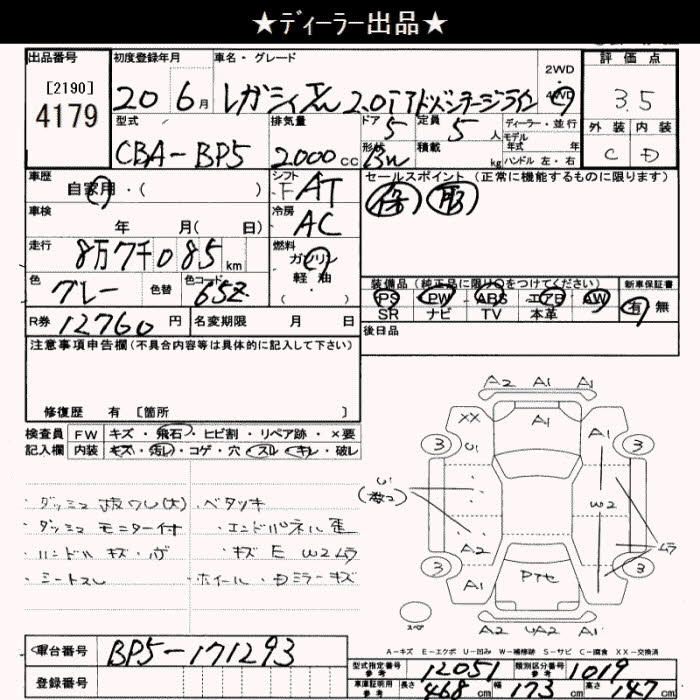 ★ディーラー出品★
出品番号
[2190]
4179
初度登録年月
20 6月
車名・グレード
レガシィ 2.0i アドバンテージライン
2WD
4WD
評価点
3.5
外装 内装
C D
型式
CBA-BP5
排気量
2000cc
ドア
5
定員
5人
形状
積載
kg
ディーラー・並行
モデル
年式 年
ハンドル 左・右
車歴
自家用・( )
シフト
F AT
冷房
AC
車検
年 月( 日)
走行
8万7千085km
燃料
ガソリン
軽油
・( )
色
グレー
色替
色コード
65Z
R券 12760円
名変期限 月 日
セールスポイント(正常に機能するものに限ります)
装備品(純正品に限り○をつけてください)
PS PW ABS エアB AW
SR ナビ TV 本革
新車保証書
有 無
後日品
注意事項申告欄(不具合内容等は具体的に記入して下さい)
修復歴 有 [箇所 ]
検査員
記入欄
FW キズ・飛石・ヒビ割・リペア跡・×要
内装 キズ・汚レ・コゲ・穴・スレ・キレ・破レ
・ダッシュ モニター付
・ハンドル キズ・
・シートスレ
・ベタツキ
・エンドパネル歪
・キズ E W2ムラ
・ホイール・ミラーキズ
A2 A1 A1
XX A1
3 U1 A1 3
U1
W2
A2 ムラ
3 3
A1 A1
A2 A2
スペア
A-キズ E-エクボ U-凹み W-補修跡 S-サビ C-腐食 XX-交換済
車台番号 BP5-171293
登録番号
型式指定番号
参考
12051
類別区分番号
参考
1019
車庫証明用
参考
長さ 468cm 幅 173cm 高さ 147cm